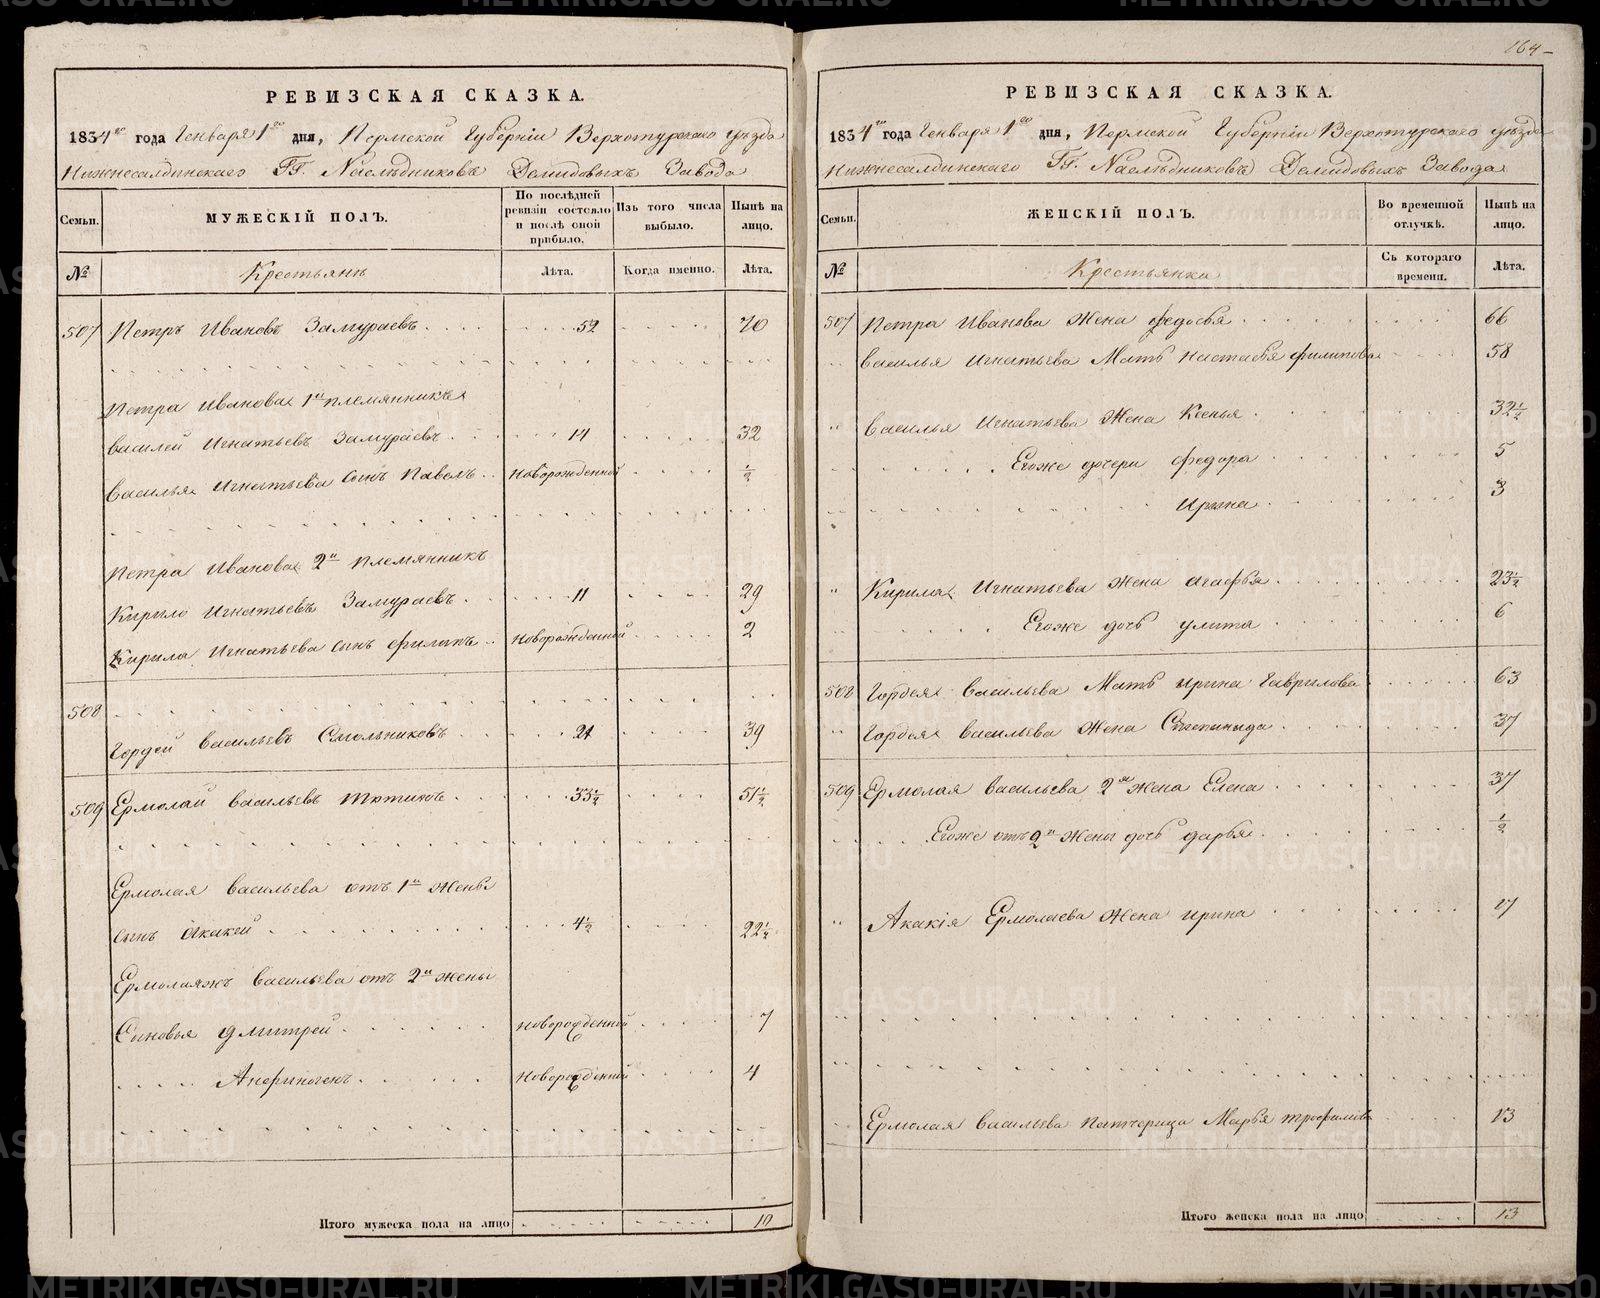 164
РЕВИЗСКАЯ СКАЗКА.
1834го года Генваря 1го дня, Пермской Губерніи Верхотурскаго уѣзда
Нижнесалдинскаго Гг. Наслѣдниковъ Демидовыхъ Завода
Семьи.
МУЖЕСКІЙ ПОЛЪ.
По послѣдней ревизіи состояло и послѣ оной прибыло.
Изъ того числа выбыло.
Нынѣ на лицо.
№
Крестьянъ
Лѣта.
Когда именно.
Лѣта.
507 Петръ Ивановъ Замураевъ 52 70
Петра Иванова 1й племянникъ
Василей Игнатьевъ Замураевъ 14 32
Василья Игнатьева сынъ Павелъ Новорожденной ½
Петра Иванова 2й племянник
Кирило Игнатьевъ Замураевъ 11 29
Кирила Игнатьева сынъ Филипъ Новорожденной 2
508
Гордей Васильевъ Смольниковъ 21 39
509 Ермолай Васильевъ Тютинъ 33½ 51½
Ермолая Васильева отъ 1й жены
сынъ Акакей 4½ 22½
Ермолаяжъ Васильева отъ 2й жены
Сыновья Дмитрей Новорожденной 7
Анфиногенъ Новорожденной 4
Итого мужеска пола на лицо 10
РЕВИЗСКАЯ СКАЗКА.
1834го года Генваря 1го дня, Пермской Губерніи Верхотурскаго уѣзда
Нижнесалдинскаго Гг. Наслѣдниковъ Демидовыхъ Завода
Семьи.
ЖЕНСКІЙ ПОЛЪ.
Во временной отлучкѣ.
Нынѣ на лицо.
№
Крестьянка
Съ котораго времени.
Лѣта.
507 Петра Иванова Жена Федосья 66
Василья Игнатьева Мать Настасья Филипова 58
Василья Игнатьева Жена Ксенья 32½
Егоже дочери Федора 5
Ирина 3
Кирила Игнатьева Жена Агафья 23½
Егоже дочь Улита 6
508 Гордея Васильева Мать Ирина Гаврилова 63
Гордея Васильева Жена Степанида 37
509 Ермолая Васильева 2я Жена Елена 37
Егоже отъ 2й Жены дочь Дарья ½
Акакія Ермолаева Жена Ирина 17
Ермолая Васильева Патчерица Марья Трофимова 13
Итого женска пола на лицо 13
METRIKI.GASO-URAL.RU